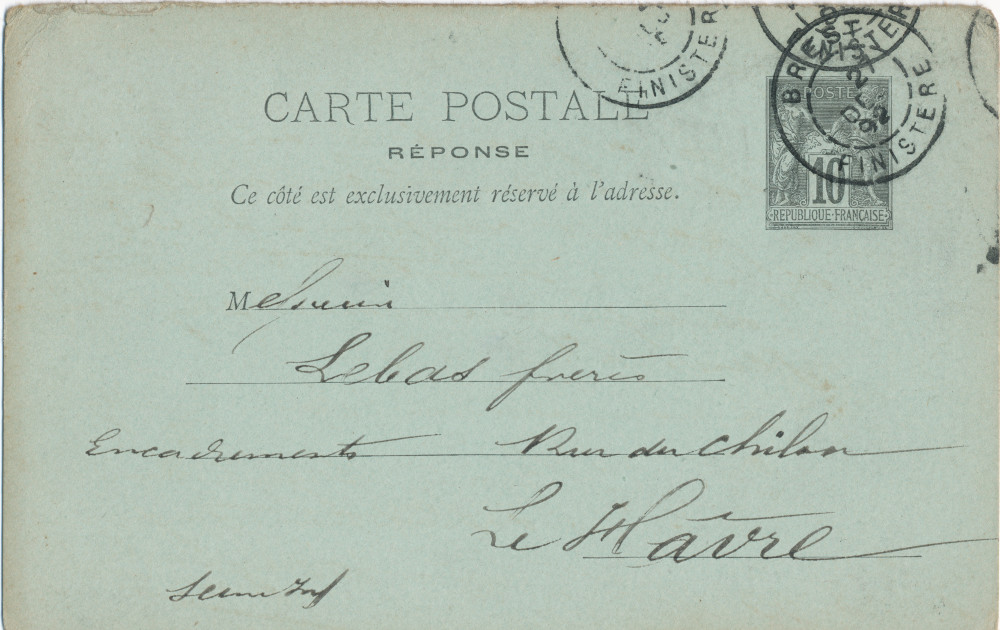 FINISTERE
BREST
FINISTERE
BREST
OC
92
FINISTERE
POSTE
10
REPUBLIQUE FRANÇAISE
CARTE POSTALE
RÉPONSE
Ce côté est exclusivement réservé à l'adresse.
Messieurs
Lebas frères
Encadrements Rue du Chilou
Le Hâvre
Seine Inf